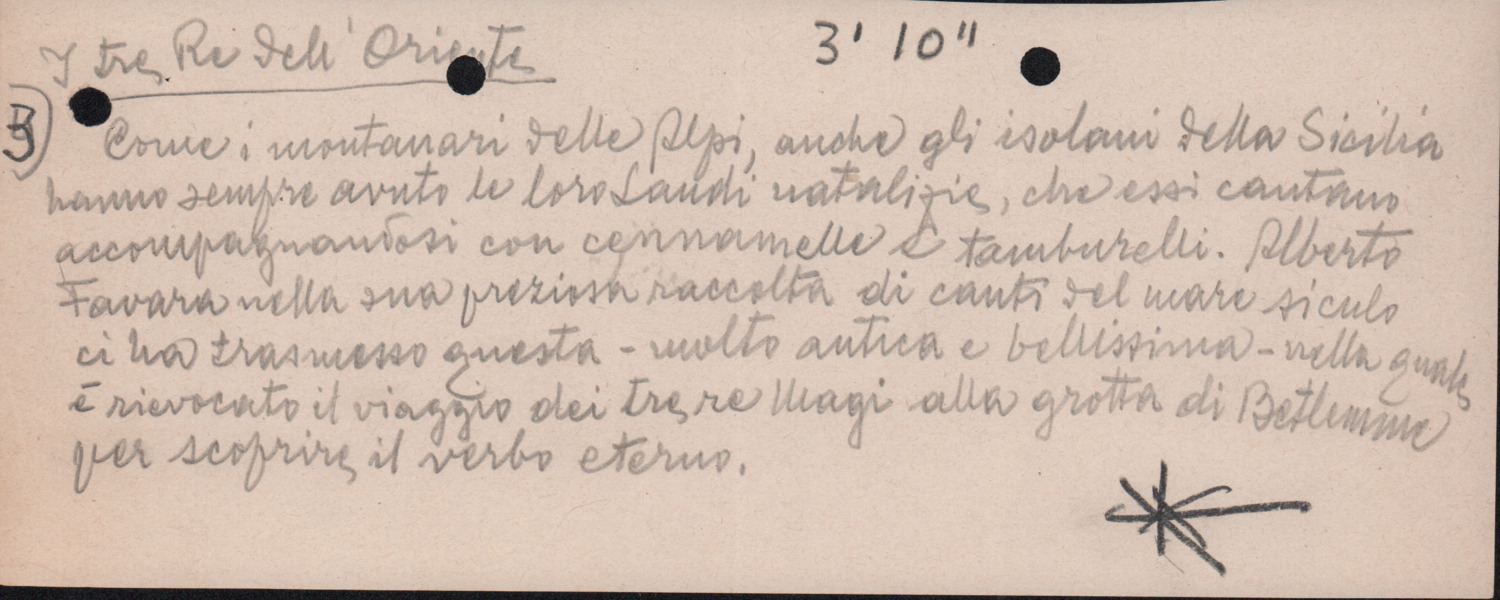 I tre Re dell'Oriente 3' 10"
3) Come i montanari delle Alpi, anche gli isolani della Sicilia
hanno sempre avuto le loro Laudi natalizie, che essi cantano
accompagnandosi con cennamelle e tamburelli. Alberto
Favara nella sua preziosa raccolta di canti del mare siculo
ci ha trasmesso questa - molto antica e bellissima - nella quale
è rievocato il viaggio dei tre re Magi alla grotta di Betlemme
per scoprire il verbo eterno.